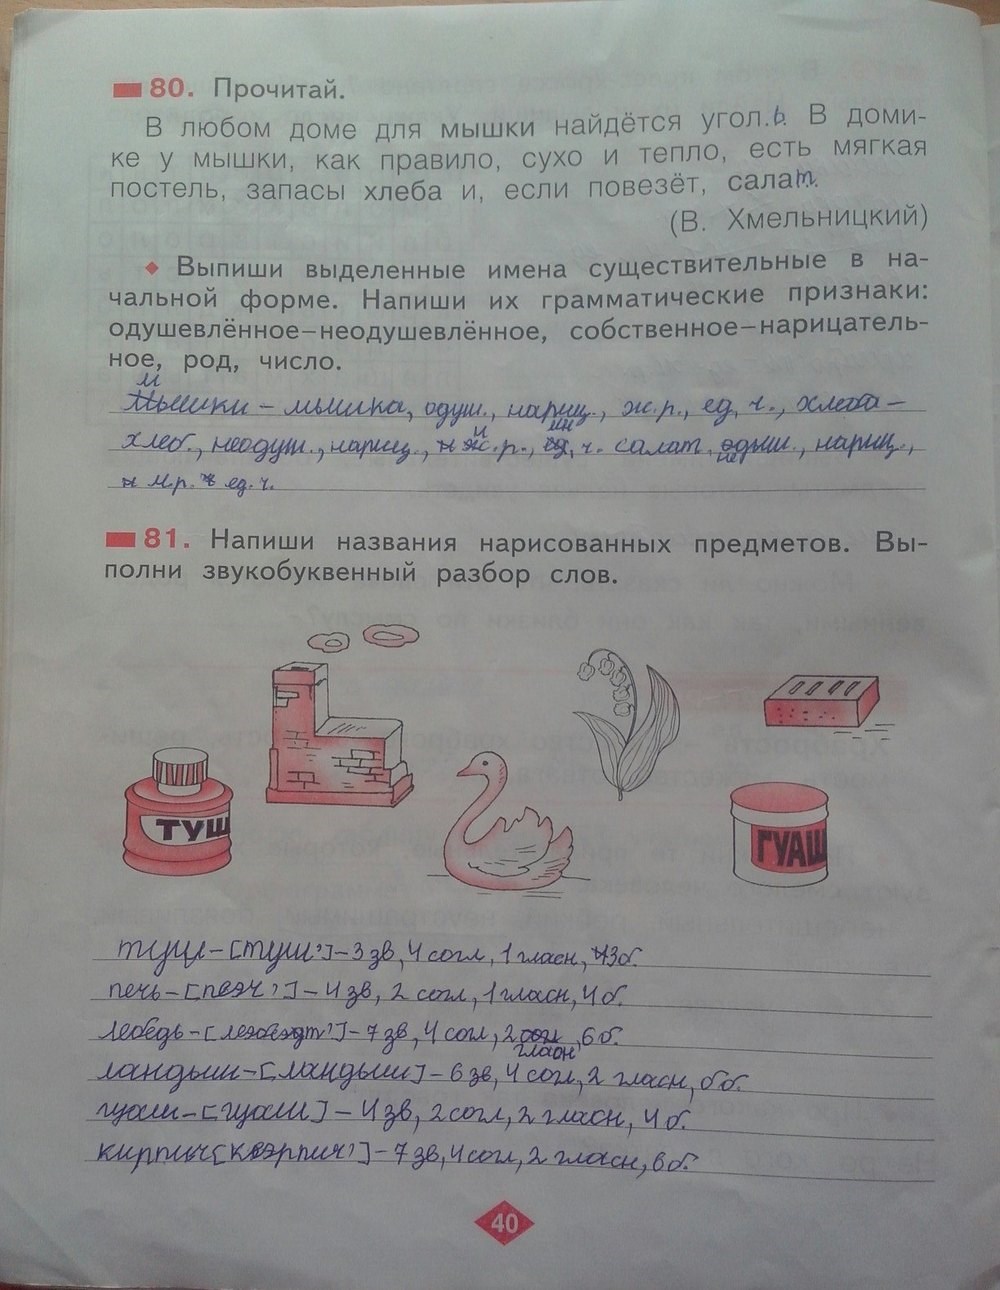 80. Прочитай.
В любом доме для мышки найдётся угол.ь. В доми-
ке у мышки, как правило, сухо и тепло, есть мягкая
постель, запасы хлеба и, если повезёт, салат.
(В. Хмельницкий)
Выпиши выделенные имена существительные в на-
чальной форме. Напиши их грамматические признаки:
одушевлённое–неодушевлённое, собственное–нарицатель-
ное, род, число.
Мышки – мышка, одуш., нариц., ж.р., ед. ч., хлеба –
хлеб., неодуш., нариц., р., ч. салат, нариц.,
м.р. ед. ч.
81. Напиши названия нарисованных предметов. Вы-
полни звукобуквенный разбор слов.
ТУШ
ГУАШ
туш – [туш'] – 3 зв, 4 согл, 1 гласн, 3 б.
печь – [пэч'] – 4 зв, 2 согл, 1 гласн, 4 б.
лебедь – – 7 зв, 4 согл, 2 гласн, 6 б.
ландыш – [ландыш] – 6 зв, 4 согл, 2 гласн, 6 б.
гуаш – [гуаш] – 4 зв, 2 согл, 2 гласн, 4 б.
кирпич – 7 зв, 4 согл, 2 гласн, 6 б.
40